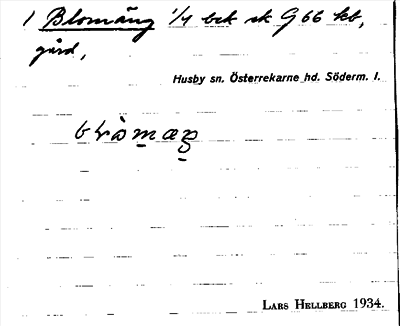 1 Blomäng 1/4 bek sk G 66 kb,
gård,
Husby sn. Österrekarne hd. Söderm. l.
LARS HELLBERG 1934.